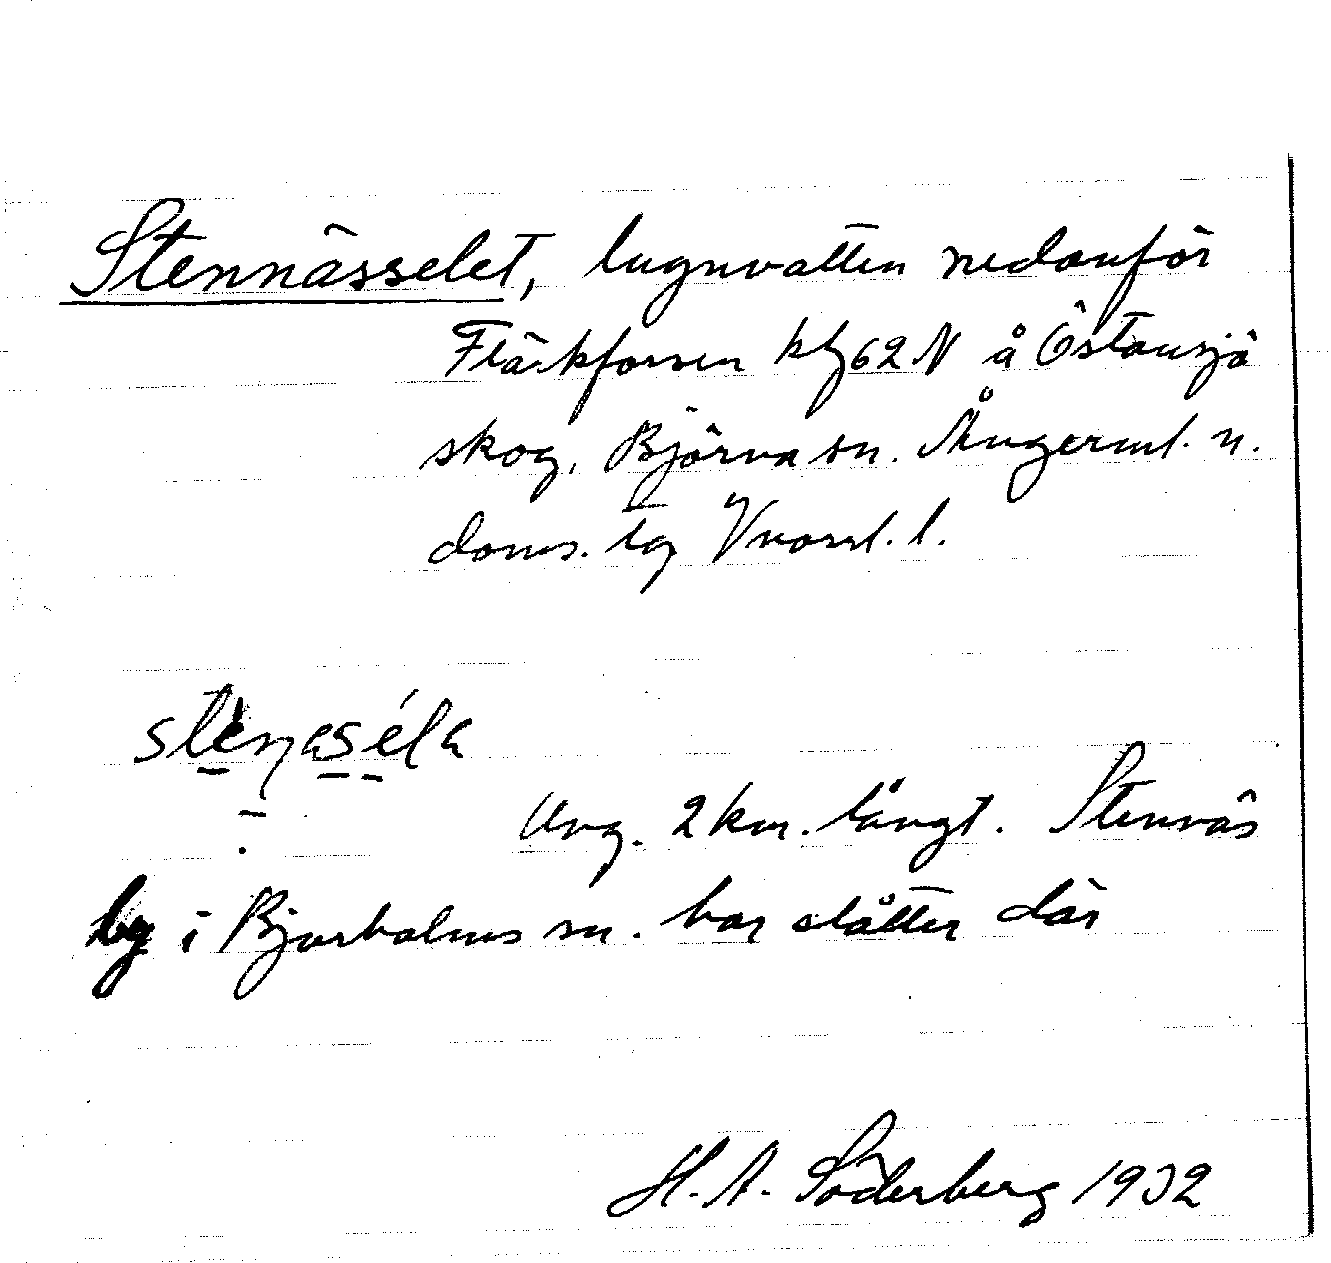 Stennässelet, lugnvatten nedanför
Fläkforsen kbl 62 N å Östansjö
skog, Björna sn. Ångerml. n.
doms. lag Vnorrl. l.
Ung. 2 km. långt. Stennäs
by i Bjurholms sn. har slåtter där
H. A. Söderberg 1932